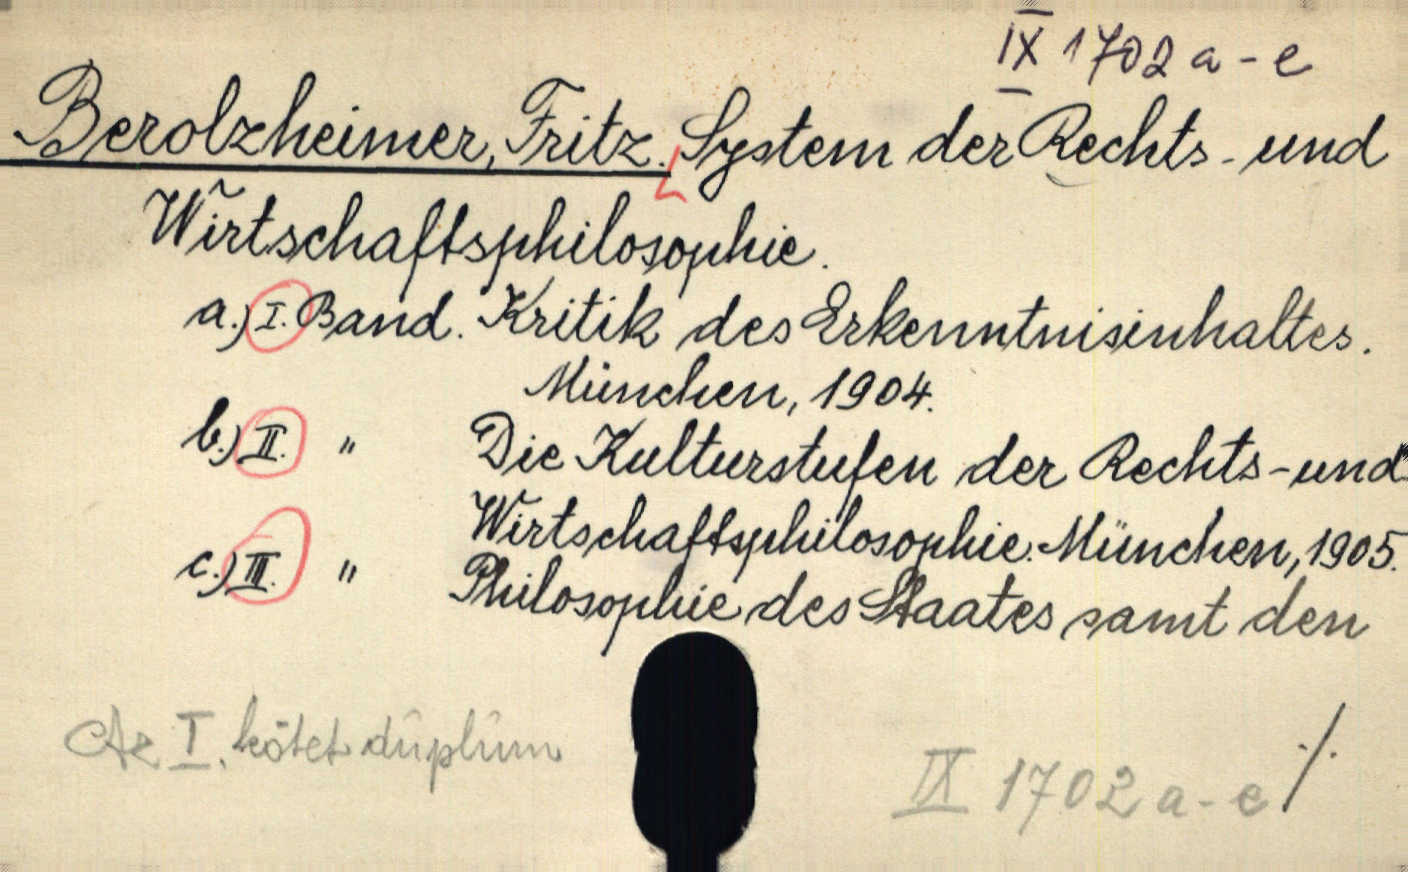 IX 1702 a-e
Berolzheimer, Fritz. System der Rechts- und
Wirtschaftsphilosophie.
a.) I. Band. Kritik des Erkenntnisinhaltes.
München, 1904.
b.) II. " Die Kulturstufen der Rechts-und
Wirtschaftsphilosophie. München, 1905.
c.) III. " Philosophie des Staates samt den
Az I. kötet duplum
IX 1702 a-e ./.